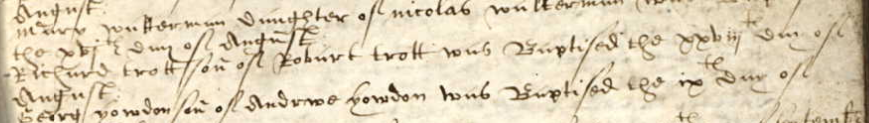 August
Mary wulterman daughter of nicolas wulterman was
the xvjth day of August
Richard trott son of Robart trott was Baptised the xxviijth day of
August
Georg yowdon son of Andrwe yowdon was Baptised the ixth day of